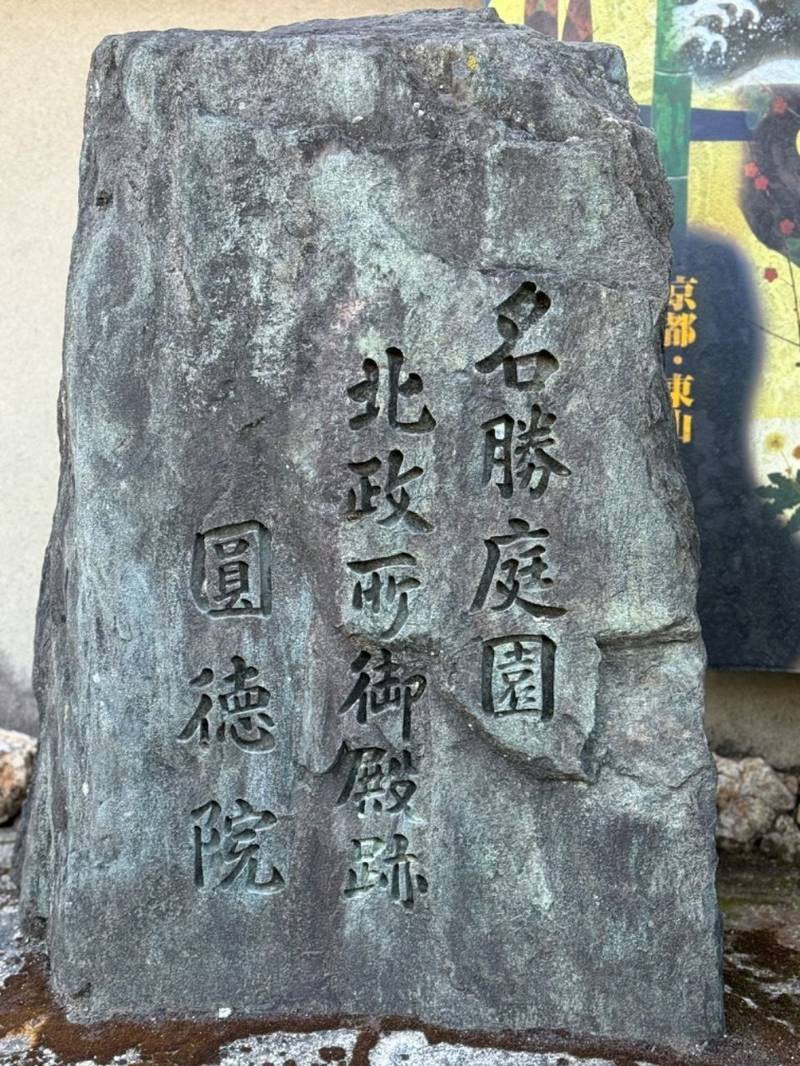 名勝庭園
北政所御殿跡
圓徳院
京都・東山